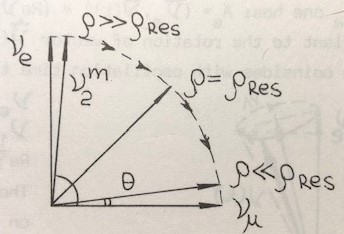 ν_e
ρ≫ρ_Res
ν_2^m
ρ=ρ_Res
θ
ρ≪ρ_Res
ν_μ